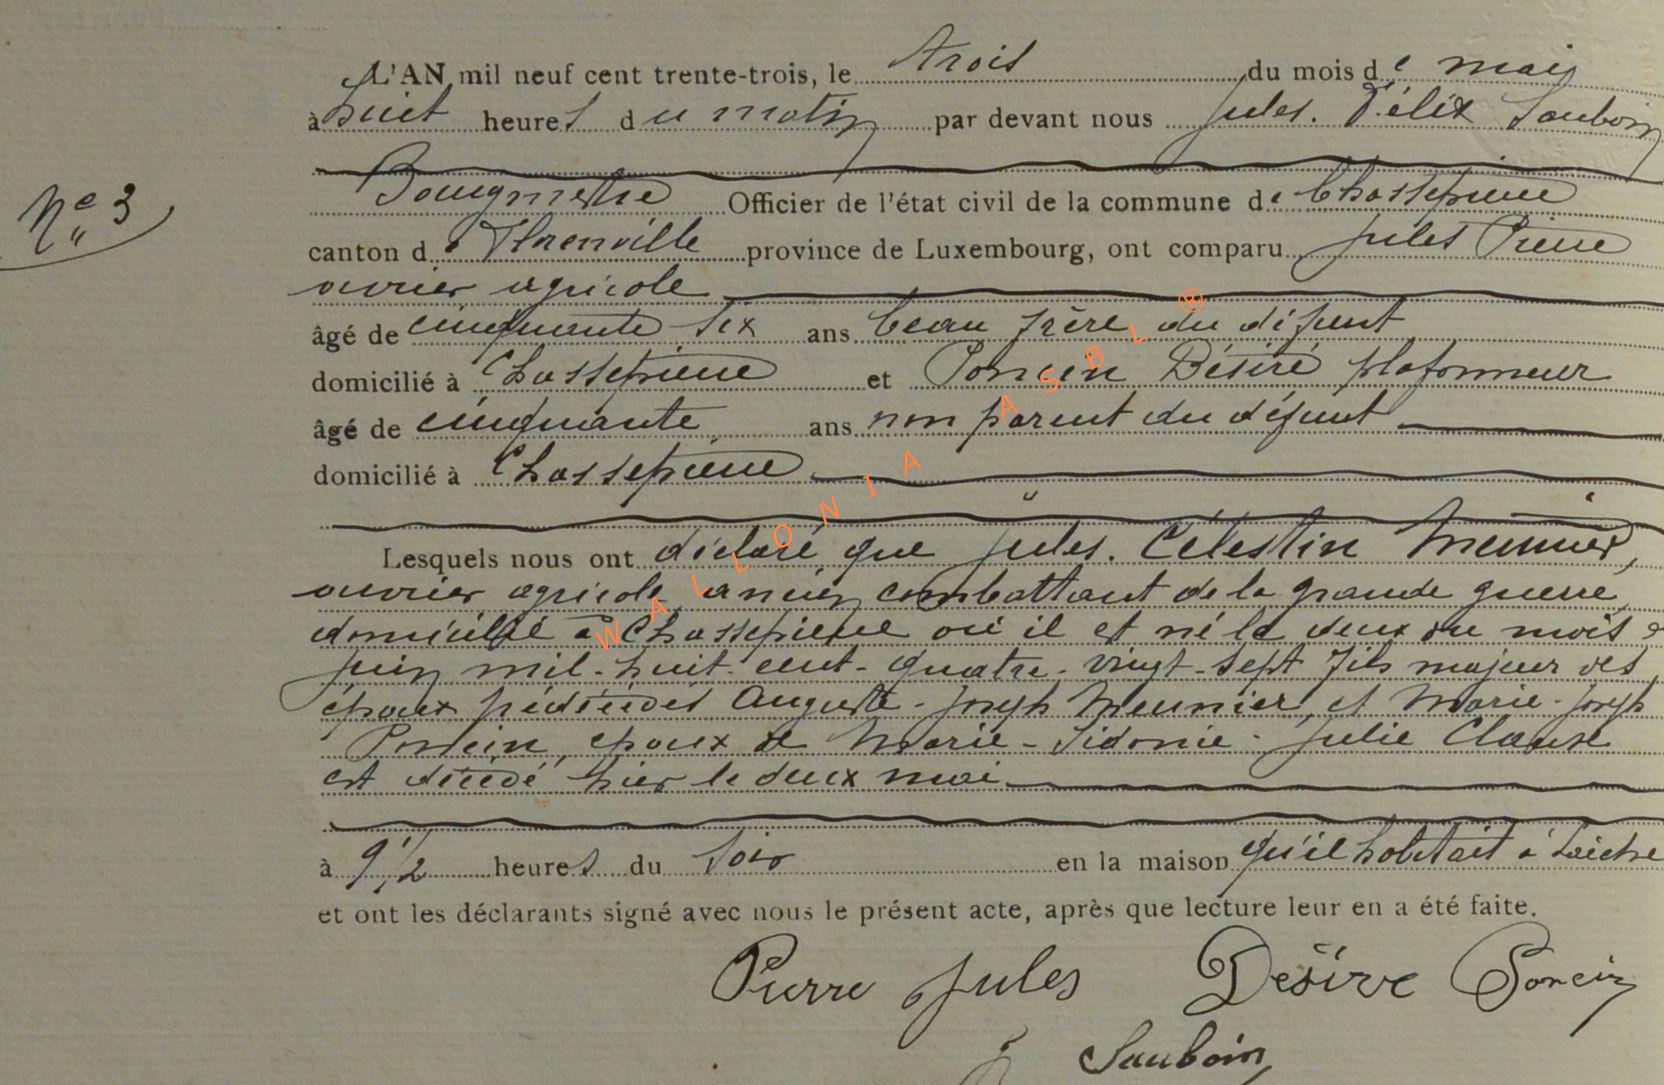 L'AN mil neuf cent trente-trois, le trois du mois de mai
à huit heures du matin par devant nous Jules. Félix Sauboin
N° 3
Bourgmestre Officier de l'état civil de la commune de Chassepierre
canton de Florenville province de Luxembourg, ont comparu Jules Pierre
ouvrier agricole
âgé de cinquante six ans beau frère du défunt
domicilié à Chassepierre et Poncin Désiré plafonneur
âgé de cinquante ans non parent du défunt
domicilié à Chassepierre
Lesquels nous ont déclaré que Jules. Célestin Meunier,
ouvrier agricole, ancien combattant de la grande guerre,
domicilié à Chassepierre où il et né le deux du mois de
juin mil-huit-cent-quatre-vingt-sept fils majeur des
époux prédécédés Auguste-Joseph Meunier, et Marie-Joseph
Poncin, époux de Marie-Sidonie-Julie Clause
est décédé hier le deux mai
à 9 1/2 heures du soir en la maison qu'il habitait à Laiche
et ont les déclarants signé avec nous le présent acte, après que lecture leur en a été faite.
Pierre Jules Désiré Poncin
J Sauboin
WALLONIA ASBL ®